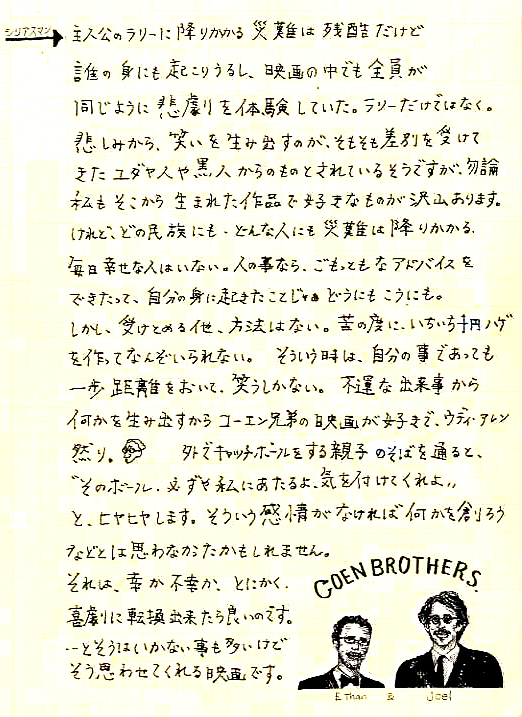 シリアスマン
主人公のラリーに降りかかる災難は残酷だけど
誰の身にも起こりうるし、映画の中でも全員が
同じように悲劇を体験していた。ラリーだけではなく。
悲しみから、笑いを生み出すのが、そもそも差別を受けて
きたユダヤ人や黒人からのものとされているそうですが、勿論
私もそこから生まれた作品で好きなものが沢山あります。
けれど、どの民族にも・どんな人にも災難は降りかかる.
毎日幸せな人はいない。人の事なら、ごもっともなアドバイスを
できたって、自分の身に起きたことじゃぁどうにもこうにも。
しかし、受けとめる他、方法はない。苦の度に、いちいち千円ハゲ
を作ってなんぞいられない。 そういう時は、自分の事であっても
一歩距離をおいて、笑うしかない。 不運な出来事から
何かを生み出すからコーエン兄弟の映画が好きで、ウディ・アレン
然り。 外でキャッチボールをする親子のそばを通ると、
"そのボール、必ずや私にあたるよ、気を付けてくれよ,,
と、ヒヤヒヤします。そういう感情がなければ何かを創ろう
などとは思わなかったかもしれません。
それは、幸か不幸か、とにかく.
喜劇に転換出来たら良いのです。
…とそうはいかない事も多いけど
そう思わせてくれる映画です。
COEN BROTHERS.
Ethan & Joel